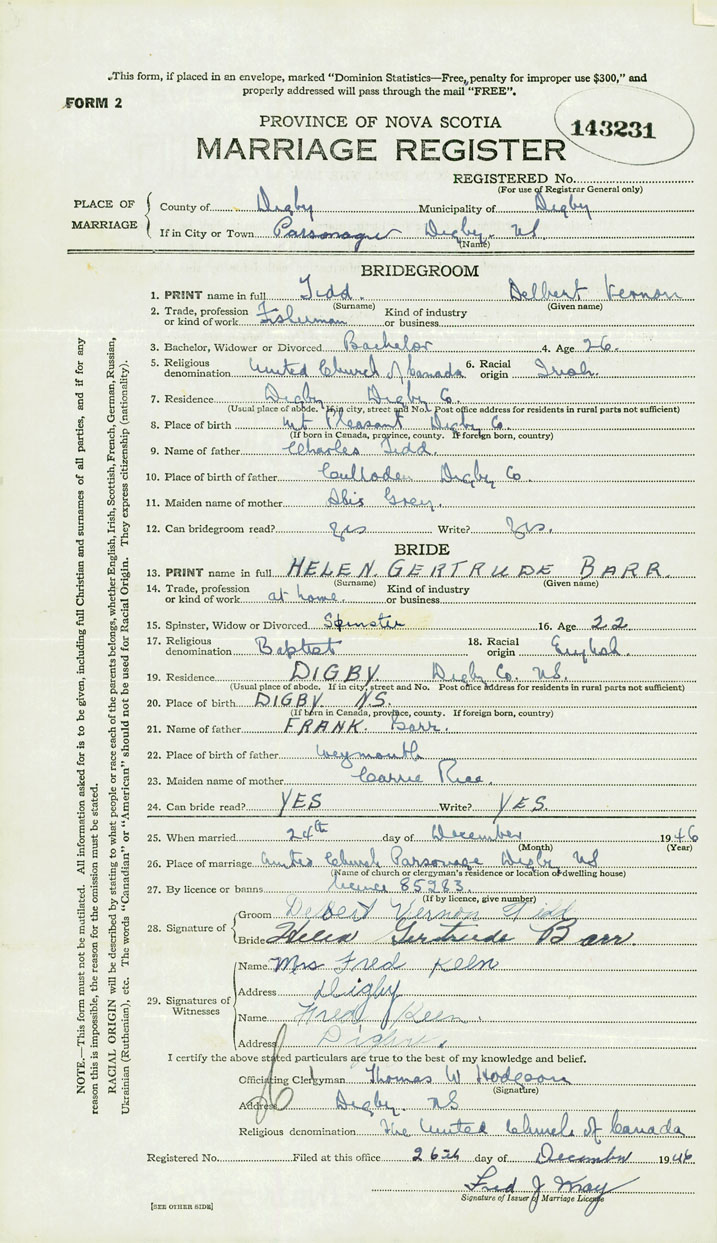 This form, if placed in an envelope, marked "Dominion Statistics—Free, penalty for improper use $300," and
properly addressed will pass through the mail "FREE".
FORM 2
PROVINCE OF NOVA SCOTIA
143231
MARRIAGE REGISTER
REGISTERED No.
(For use of Registrar General only)
PLACE OF MARRIAGE
County of Digby Municipality of Digby
If in City or Town Parsonage Digby. NS.
(Name)
BRIDEGROOM
1. PRINT name in full Tidd. Delbert Vernon
(Surname) (Given name)
2. Trade, profession or kind of work Fisherman Kind of industry or business
3. Bachelor, Widower or Divorced Bachelor 4. Age 26.
5. Religious denomination United Church of Canada 6. Racial origin Irish.
7. Residence Digby Digby Co.
(Usual place of abode. If in city, street and No. Post office address for residents in rural parts not sufficient)
8. Place of birth Mt Pleasant Digby Co.
(If born in Canada, province, county. If foreign born, country)
9. Name of father Charles Tidd.
10. Place of birth of father Culloden Digby Co.
11. Maiden name of mother Grey.
12. Can bridegroom read? yes Write? yes.
BRIDE
13. PRINT name in full HELEN. GERTRUDE BARR.
(Surname) (Given name)
14. Trade, profession or kind of work at home. Kind of industry or business
15. Spinster, Widow or Divorced Spinster 16. Age 22
17. Religious denomination Baptist 18. Racial origin English.
19. Residence DIGBY. Digby Co. NS.
(Usual place of abode. If in city, street and No. Post office address for residents in rural parts not sufficient)
20. Place of birth DIGBY NS.
(If born in Canada, province, county. If foreign born, country)
21. Name of father FRANK. Barr.
22. Place of birth of father Weymouth
23. Maiden name of mother Carrie Rice.
24. Can bride read? YES Write? YES.
25. When married 24th day of December 1946
(Month) (Year)
26. Place of marriage United Church Parsonage Digby NS
(Name of church or clergyman's residence or location of dwelling house)
27. By licence or banns licence 85283.
(If by licence, give number)
28. Signature of
Groom Delbert Vernon Tidd
Bride Helen Gertrude Barr.
29. Signatures of Witnesses
Name Mrs Fred Keen
Address Digby
Name Fred Keen.
Address Digby.
I certify the above stated particulars are true to the best of my knowledge and belief.
Officiating Clergyman Thomas W Hodgson
(Signature)
Address Digby. NS
Religious denomination The United Church of Canada
Registered No. Filed at this office 26th day of December 1946
Fred J Wray
Signature of Issuer of Marriage License
[SEE OTHER SIDE]
NOTE.—This form must not be mutilated. All information asked for is to be given, including full Christian and surnames of all parties, and if for any
reason this is impossible, the reason for the omission must be stated.
RACIAL ORIGIN will be described by stating to what people or race each of the parents belongs, whether English, Irish, Scottish, French, German, Russian,
Ukrainian (Ruthenian), etc. The words "Canadian" or "American" should not be used for Racial Origin. They express citizenship (nationality).